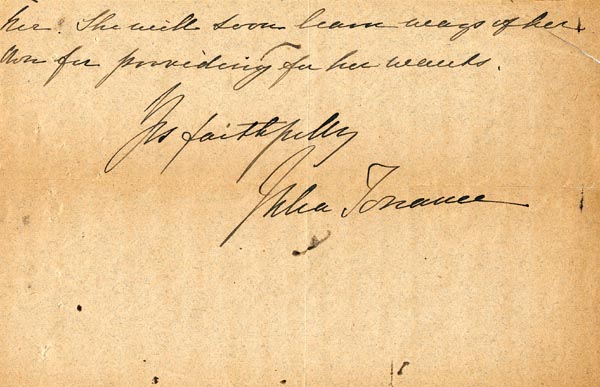 her. She will soon learn ways of her
own for providing for her wants.
Yrs faithfully
Julia Torrance